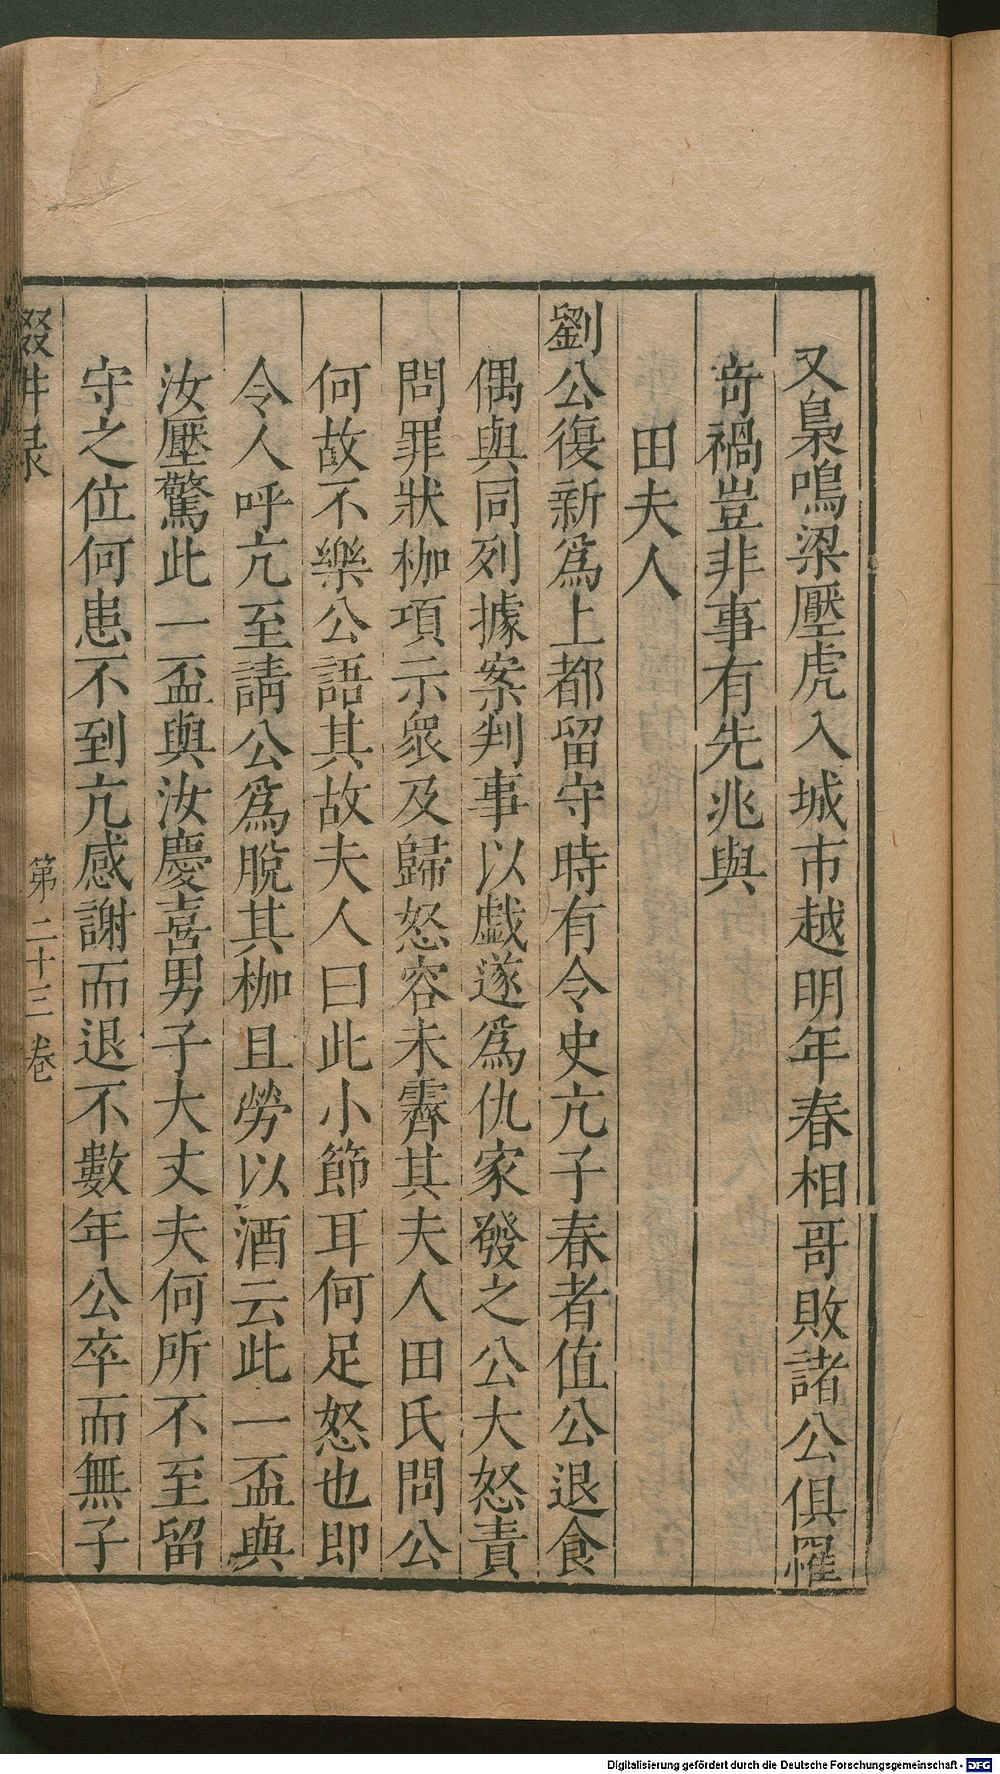 又梟鳴梁壓虎入城市越明年春相哥敗諸公俱罹
竒禍豈非事有先兆與
田夫人
劉公復新爲上都留守時有令史亢子春者值公退食
偶與同列據案判事以戯遂爲仇家發之公大怒責
問罪狀枷項示衆及歸怒容未霽其夫人田氏問公
何故不樂公語其故夫人曰此小節耳何足怒也即
令人呼亢至請公爲脫其枷且勞以酒云此一盃與
汝壓驚此一盃與汝慶喜男子大丈夫何所不至留
守之位何患不到亢感謝而退不數年公卒而無子
第二十三卷
Digitalisierung gefördert durch die Deutsche Forschungsgemeinschaft - DFG